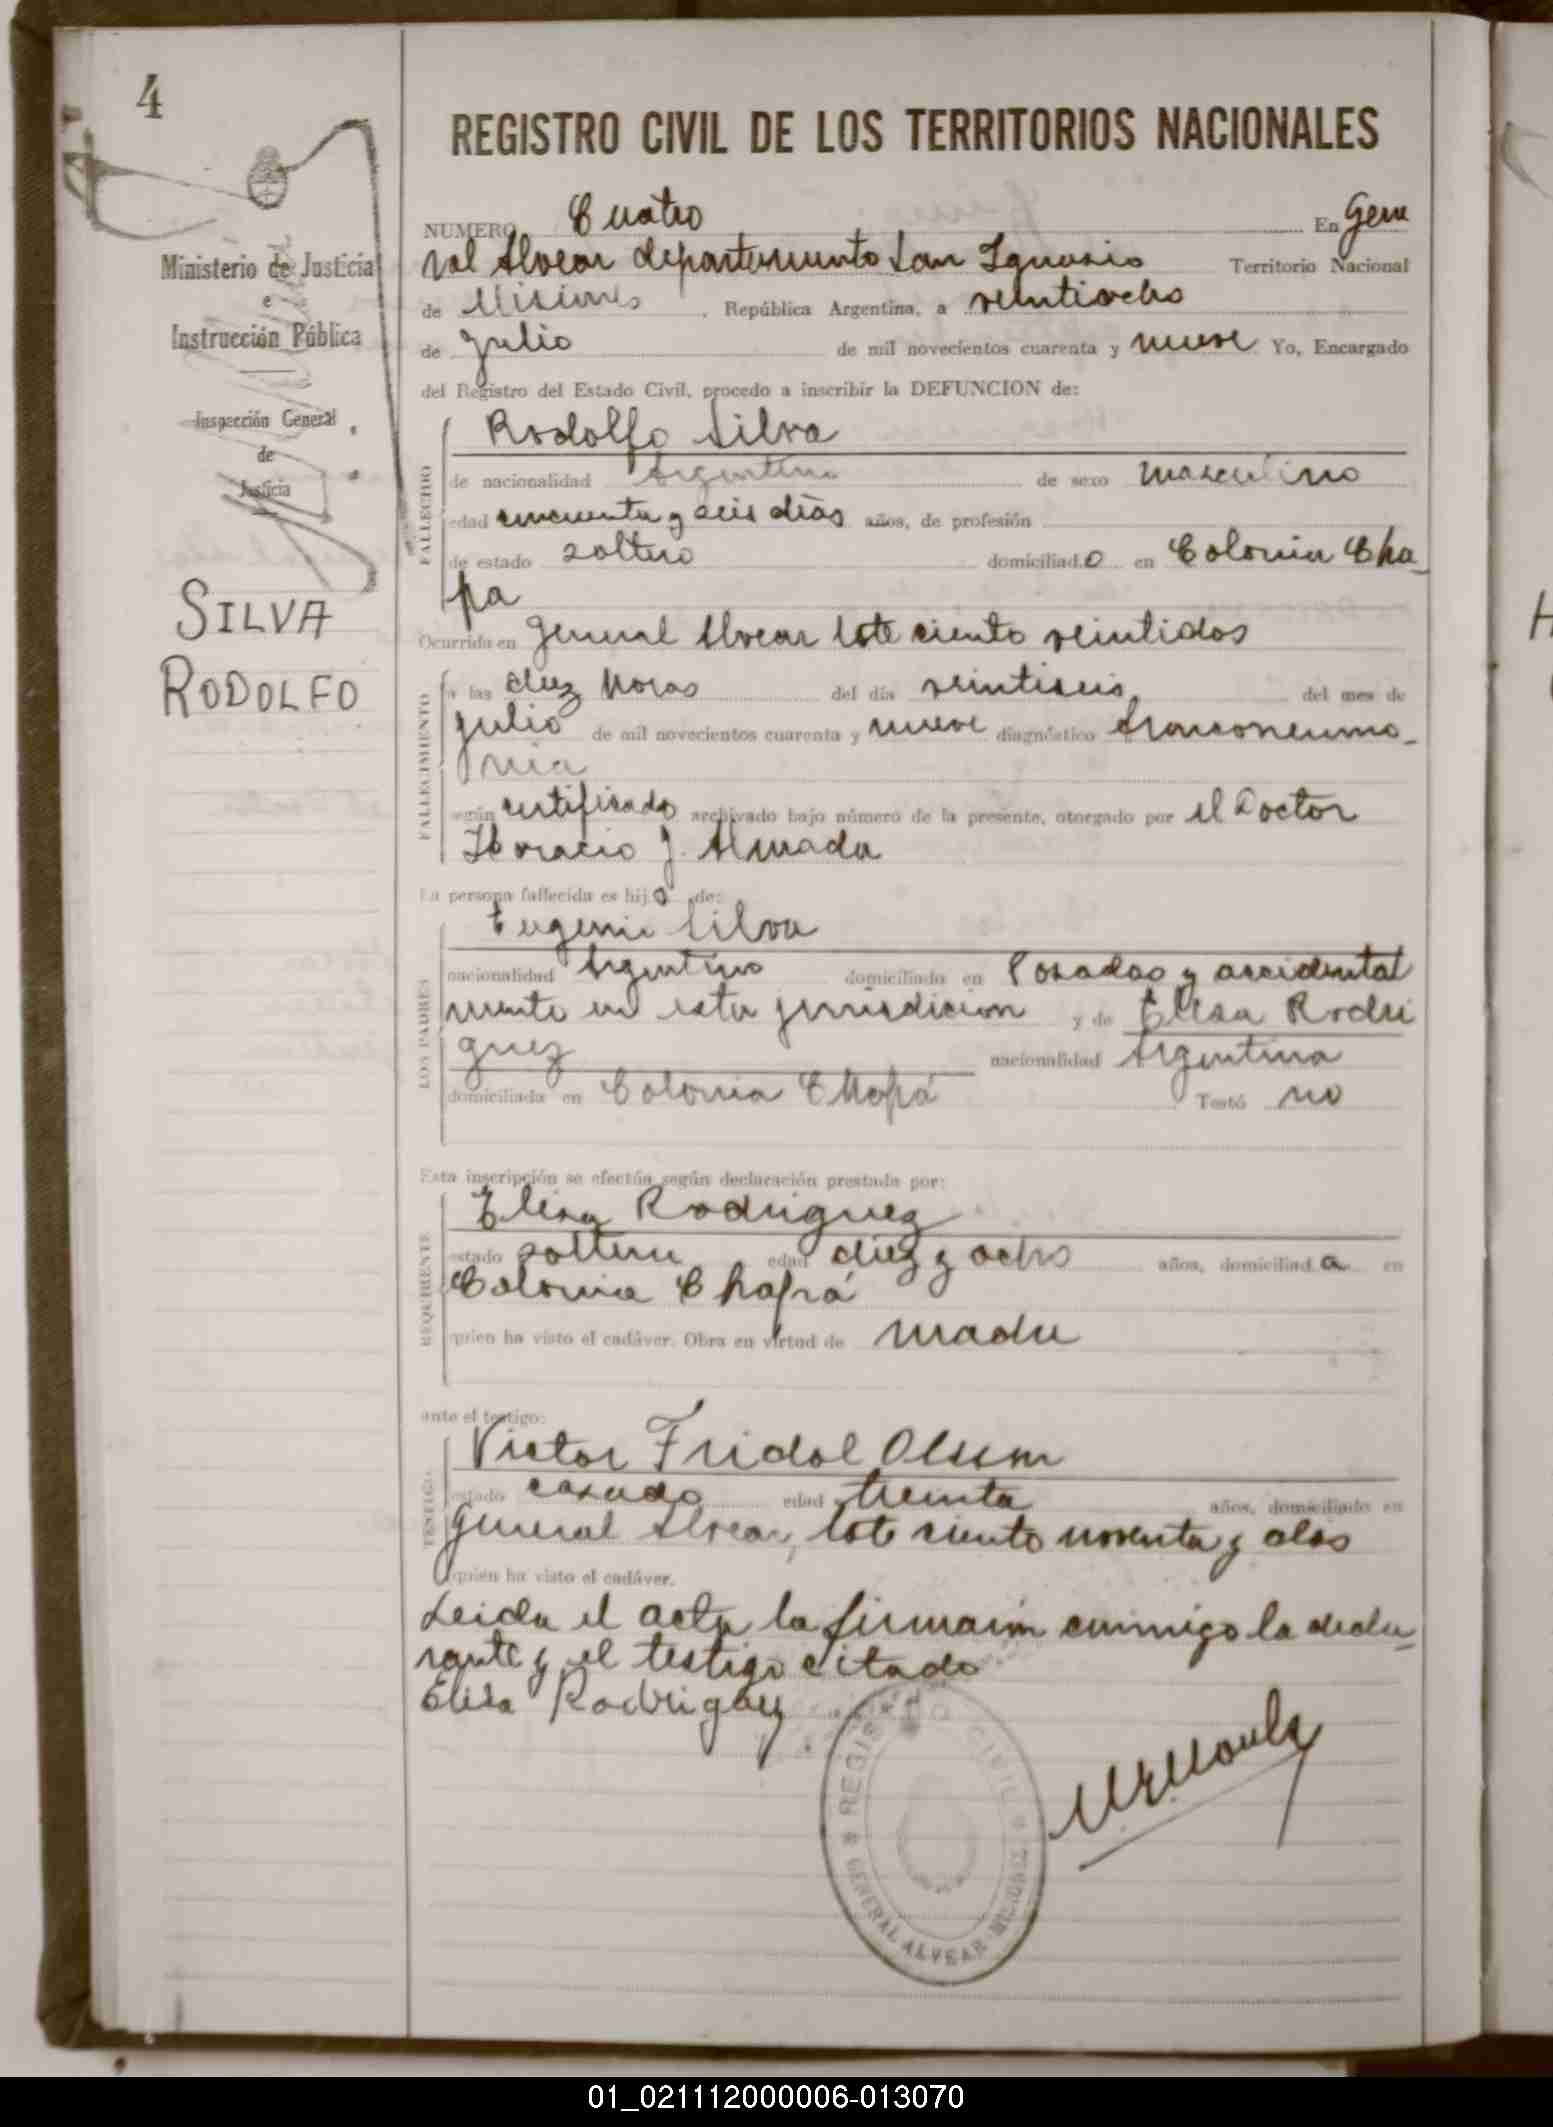 4
REGISTRO CIVIL DE LOS TERRITORIOS NACIONALES
NUMERO Cuatro En Gene
ral Alvear departamento San Ignacio Territorio Nacional
de Misiones, República Argentina, a veintiocho
de julio de mil novecientos cuarenta y nueve Yo, Encargado
del Registro del Estado Civil, procedo a inscribir la DEFUNCION de:
Ministerio de Justicia
e
Instrucción Pública
Inspección General
de
Justicia
SILVA
RODOLFO
FALLECIDO
Rodolfo Silva
de nacionalidad Argentina de sexo masculino
edad cincuenta y seis días años, de profesión
de estado soltero domiciliado en Colonia Cha-
pa
Ocurrido en General Alvear lote ciento veintidos
FALLECIMIENTO
a las diez horas del día veintiseis del mes de
julio de mil novecientos cuarenta y nueve diagnóstico bronconeumo-
nia
según certificado archivado bajo número de la presente, otorgado por el Doctor
Horacio J. Almada
La persona fallecida es hijo de:
LOS PADRES
Eugenio Silva
nacionalidad Argentino domiciliado en Posadas y accidental
mente en esta jurisdicion y de Elisa Rodri
guez nacionalidad Argentina
domiciliada en Colonia Chapá Testó no
Esta inscripción se efectúa según declaración prestada por:
REQUIRENTE
Elisa Rodriguez
estado soltera edad diez y ocho años, domiciliada en
Colonia Chapá
quien ha visto el cadáver. Obra en virtud de madre
ante el testigo:
TESTIGO
Victor Fridol Olssen
estado casado edad treinta años, domiciliado en
General Alvear, lote ciento noventa y dos
quien ha visto el cadáver.
Leida el acta la firmaron conmigo la decla-
rante y el testigo citado
Elisa Rodriguez
REGISTRO CIVIL
GENERAL ALVEAR MISIONES
01_021112000006-013070